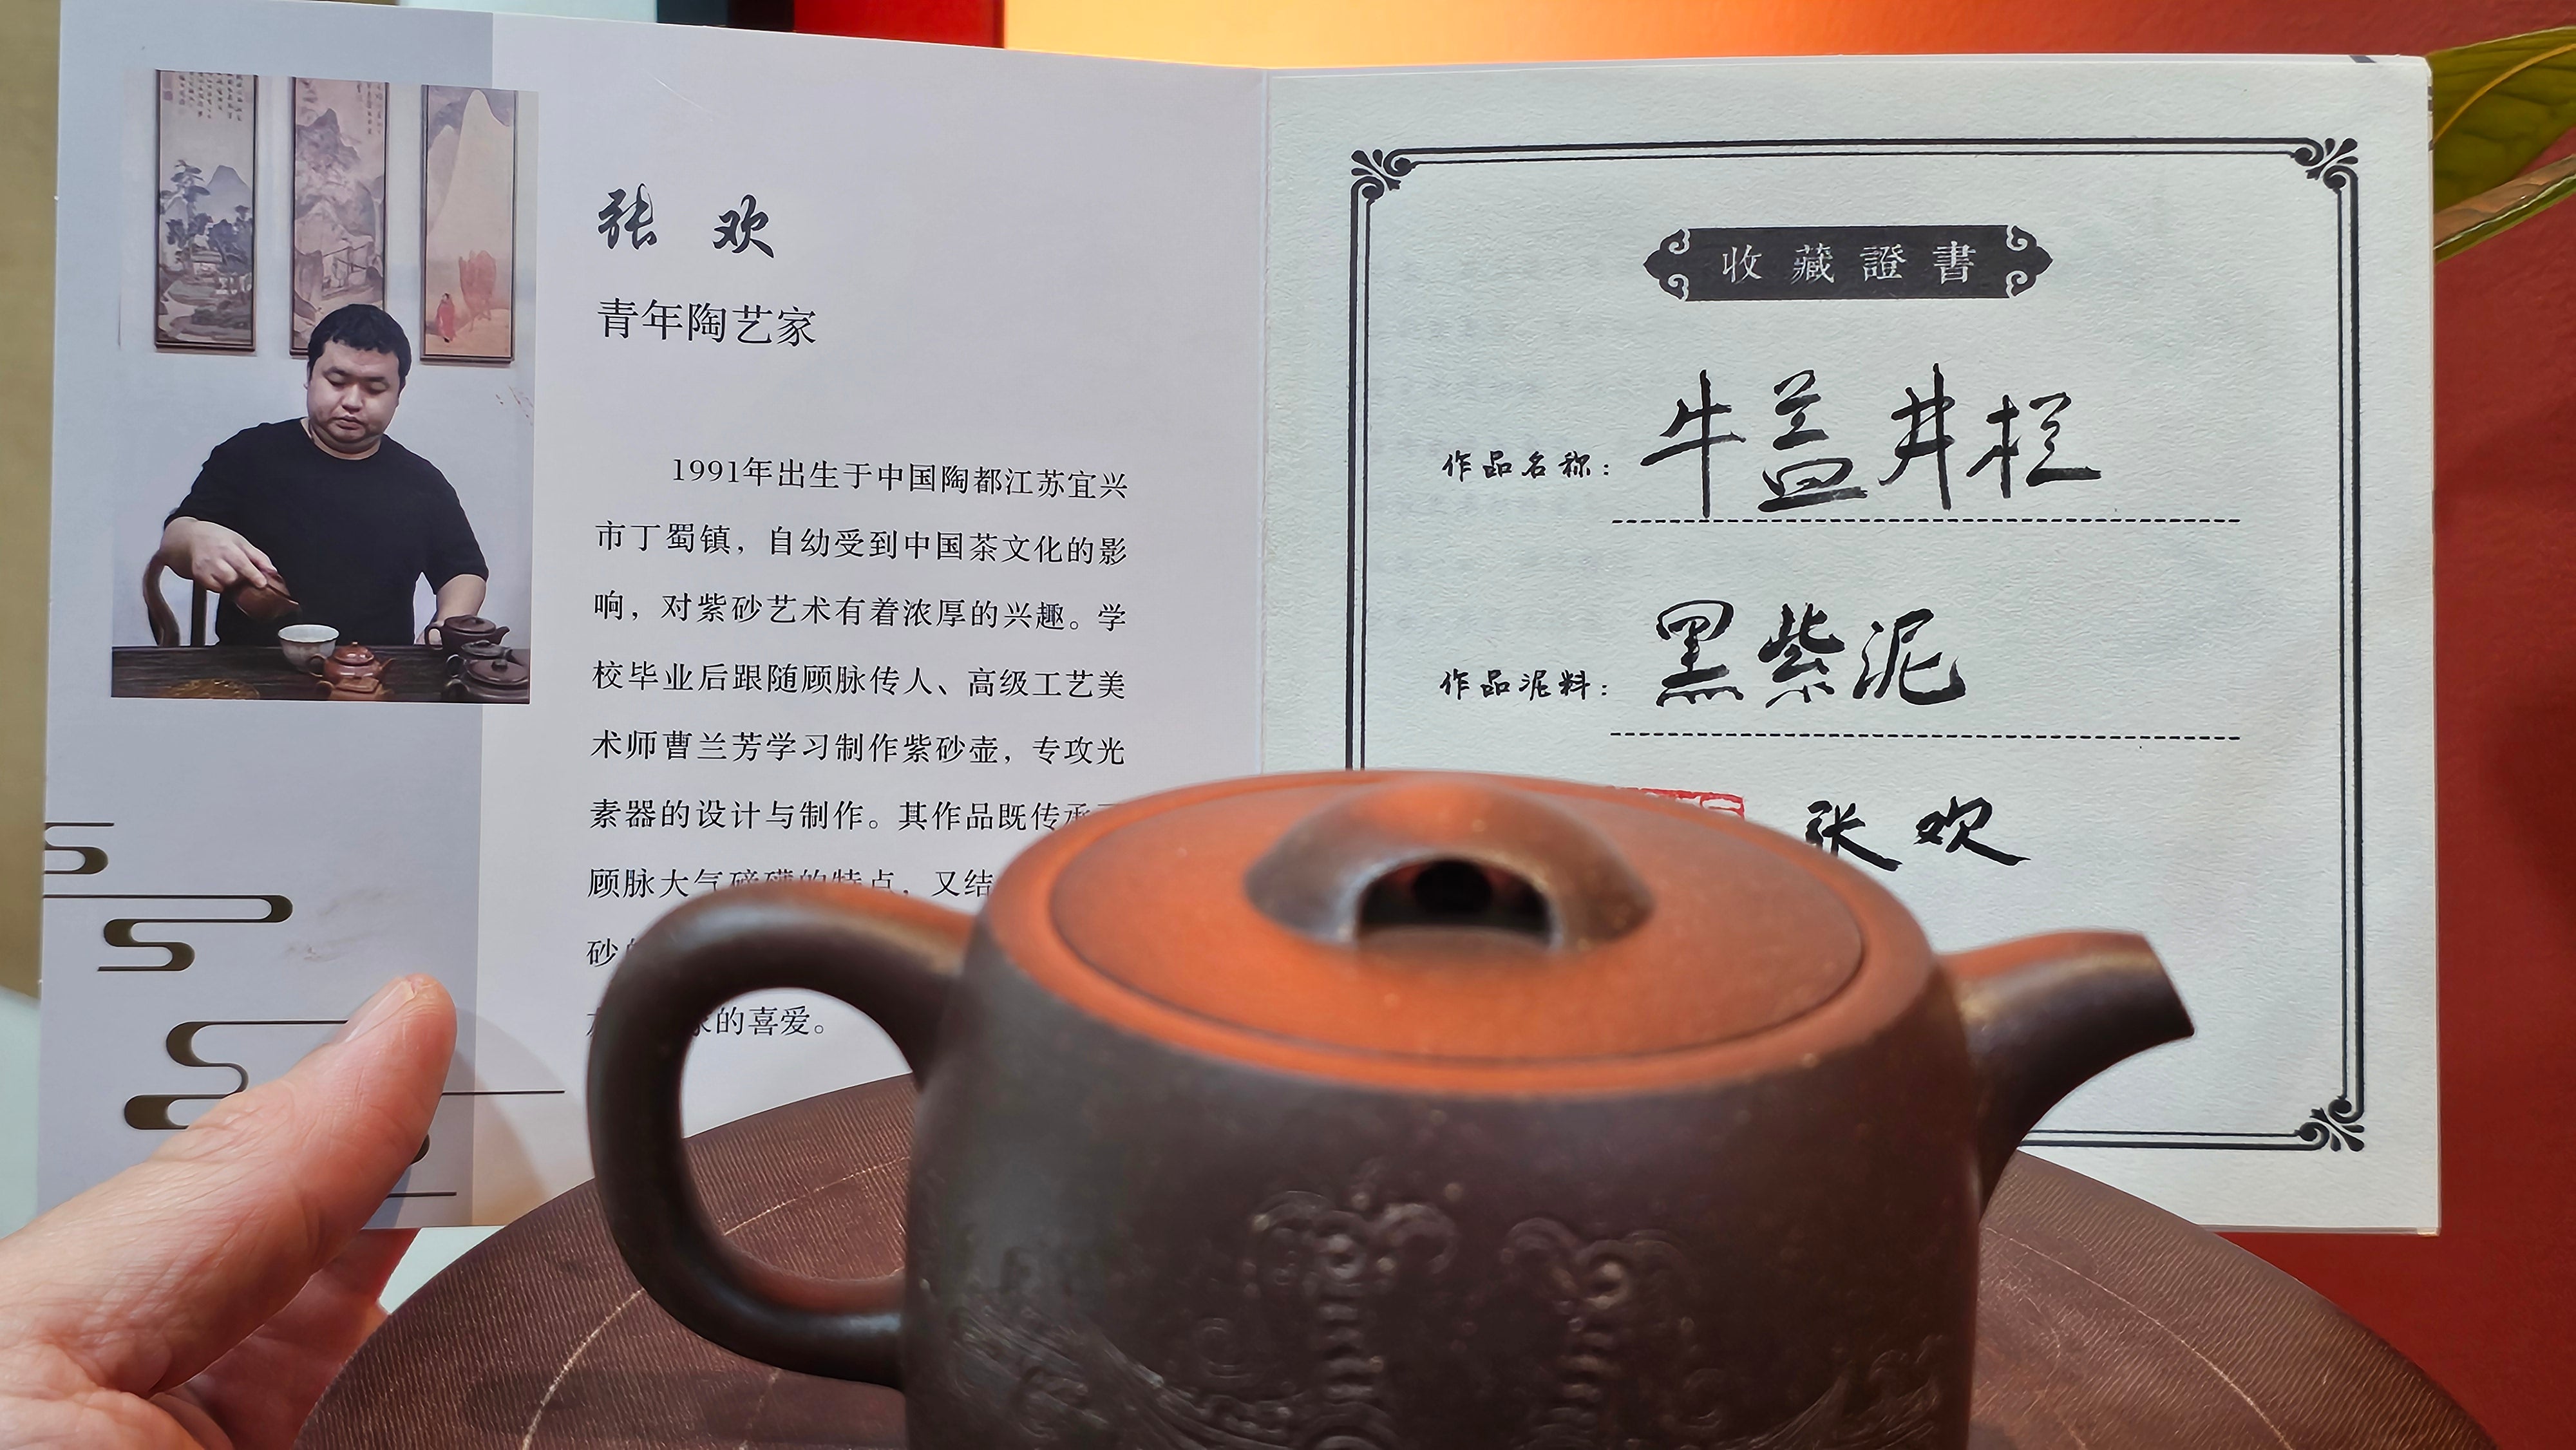 张 欢
青年陶艺家
1991年出生于中国陶都江苏宜兴
市丁蜀镇，自幼受到中国茶文化的影
响，对紫砂艺术有着浓厚的兴趣。学
校毕业后跟随顾脉传人、高级工艺美
术师曹兰芳学习制作紫砂壶，专攻光
素器的设计与制作。其作品既传承
顾脉大气磅礴的特点，又结
砂
家的喜爱。
收藏證書
作品名称：牛盖井栏
作品泥料：黑紫泥
张欢